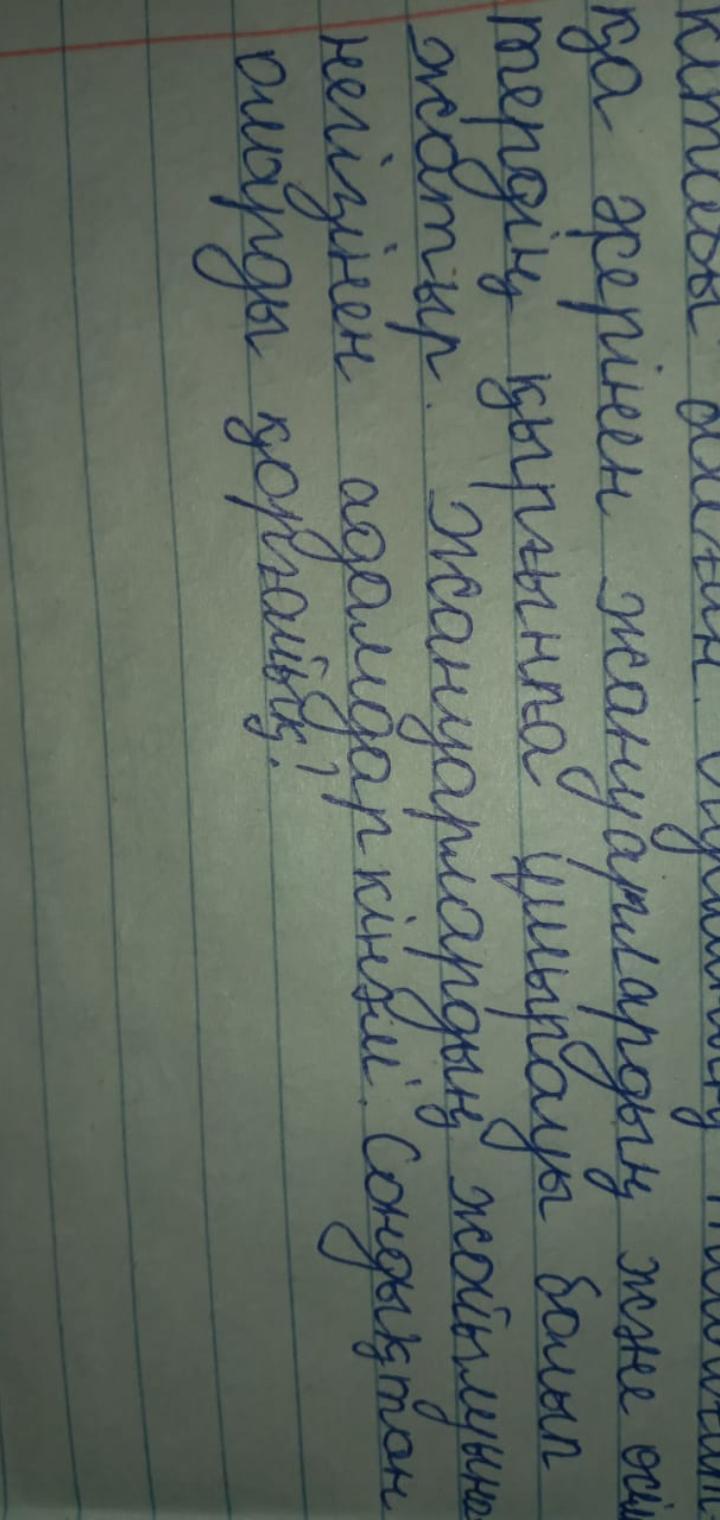 қа жерінен жануарлардың және өсім
тердің қырғынға ұшырауы болып
жатыр. Жануарлардың жойылуына
негізінен адамдар кінәлі. Сондықтан
оларды қорғайық!